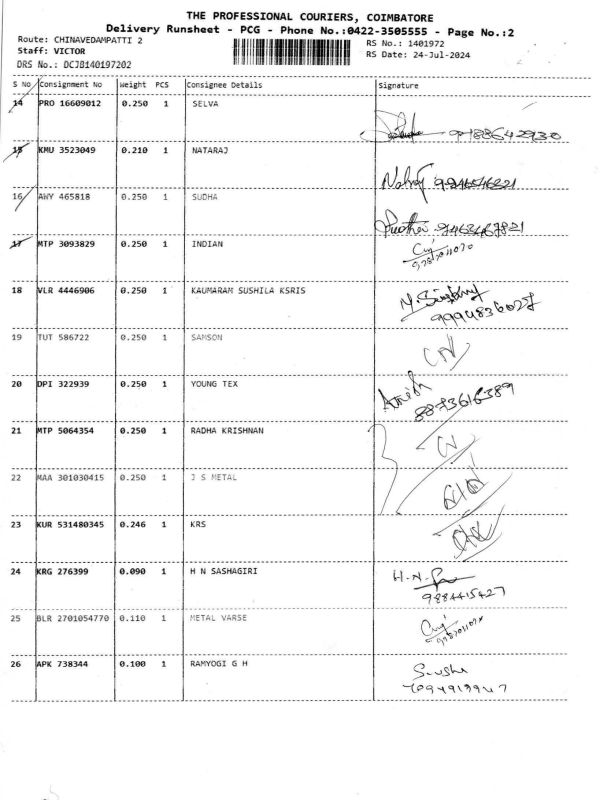 THE PROFESSIONAL COURIERS, COIMBATORE
Delivery Runsheet - PCG - Phone No.:0422-3505555 - Page No.:2
Route: CHINAVEDAMPATTI 2 RS No.: 1401972
Staff: VICTOR RS Date: 24-Jul-2024
DRS No.: DCJB140197202
S No Consignment No Weight PCS Consignee Details Signature
14 PRO 16609012 0.250 1 SELVA
15 KMU 3523049 0.210 1 NATARAJ
Nataraj
16 AWY 465818 0.250 1 SUDHA
17 MTP 3093829 0.250 1 INDIAN
18 VLR 4446906 0.250 1 KAUMARAM SUSHILA KSRIS
9994836027
19 TUT 586722 0.250 1 SAMSON
20 DPI 322939 0.250 1 YOUNG TEX
8873616389
21 MTP 5064354 0.250 1 RADHA KRISHNAN
22 MAA 301030415 0.250 1 J S METAL
23 KUR 531480345 0.246 1 KRS
24 KRG 276399 0.090 1 H N SASHAGIRI
H.N.
9884415427
25 BLR 2701054770 0.110 1 METAL VARSE
26 APK 738344 0.100 1 RAMYOGI G H